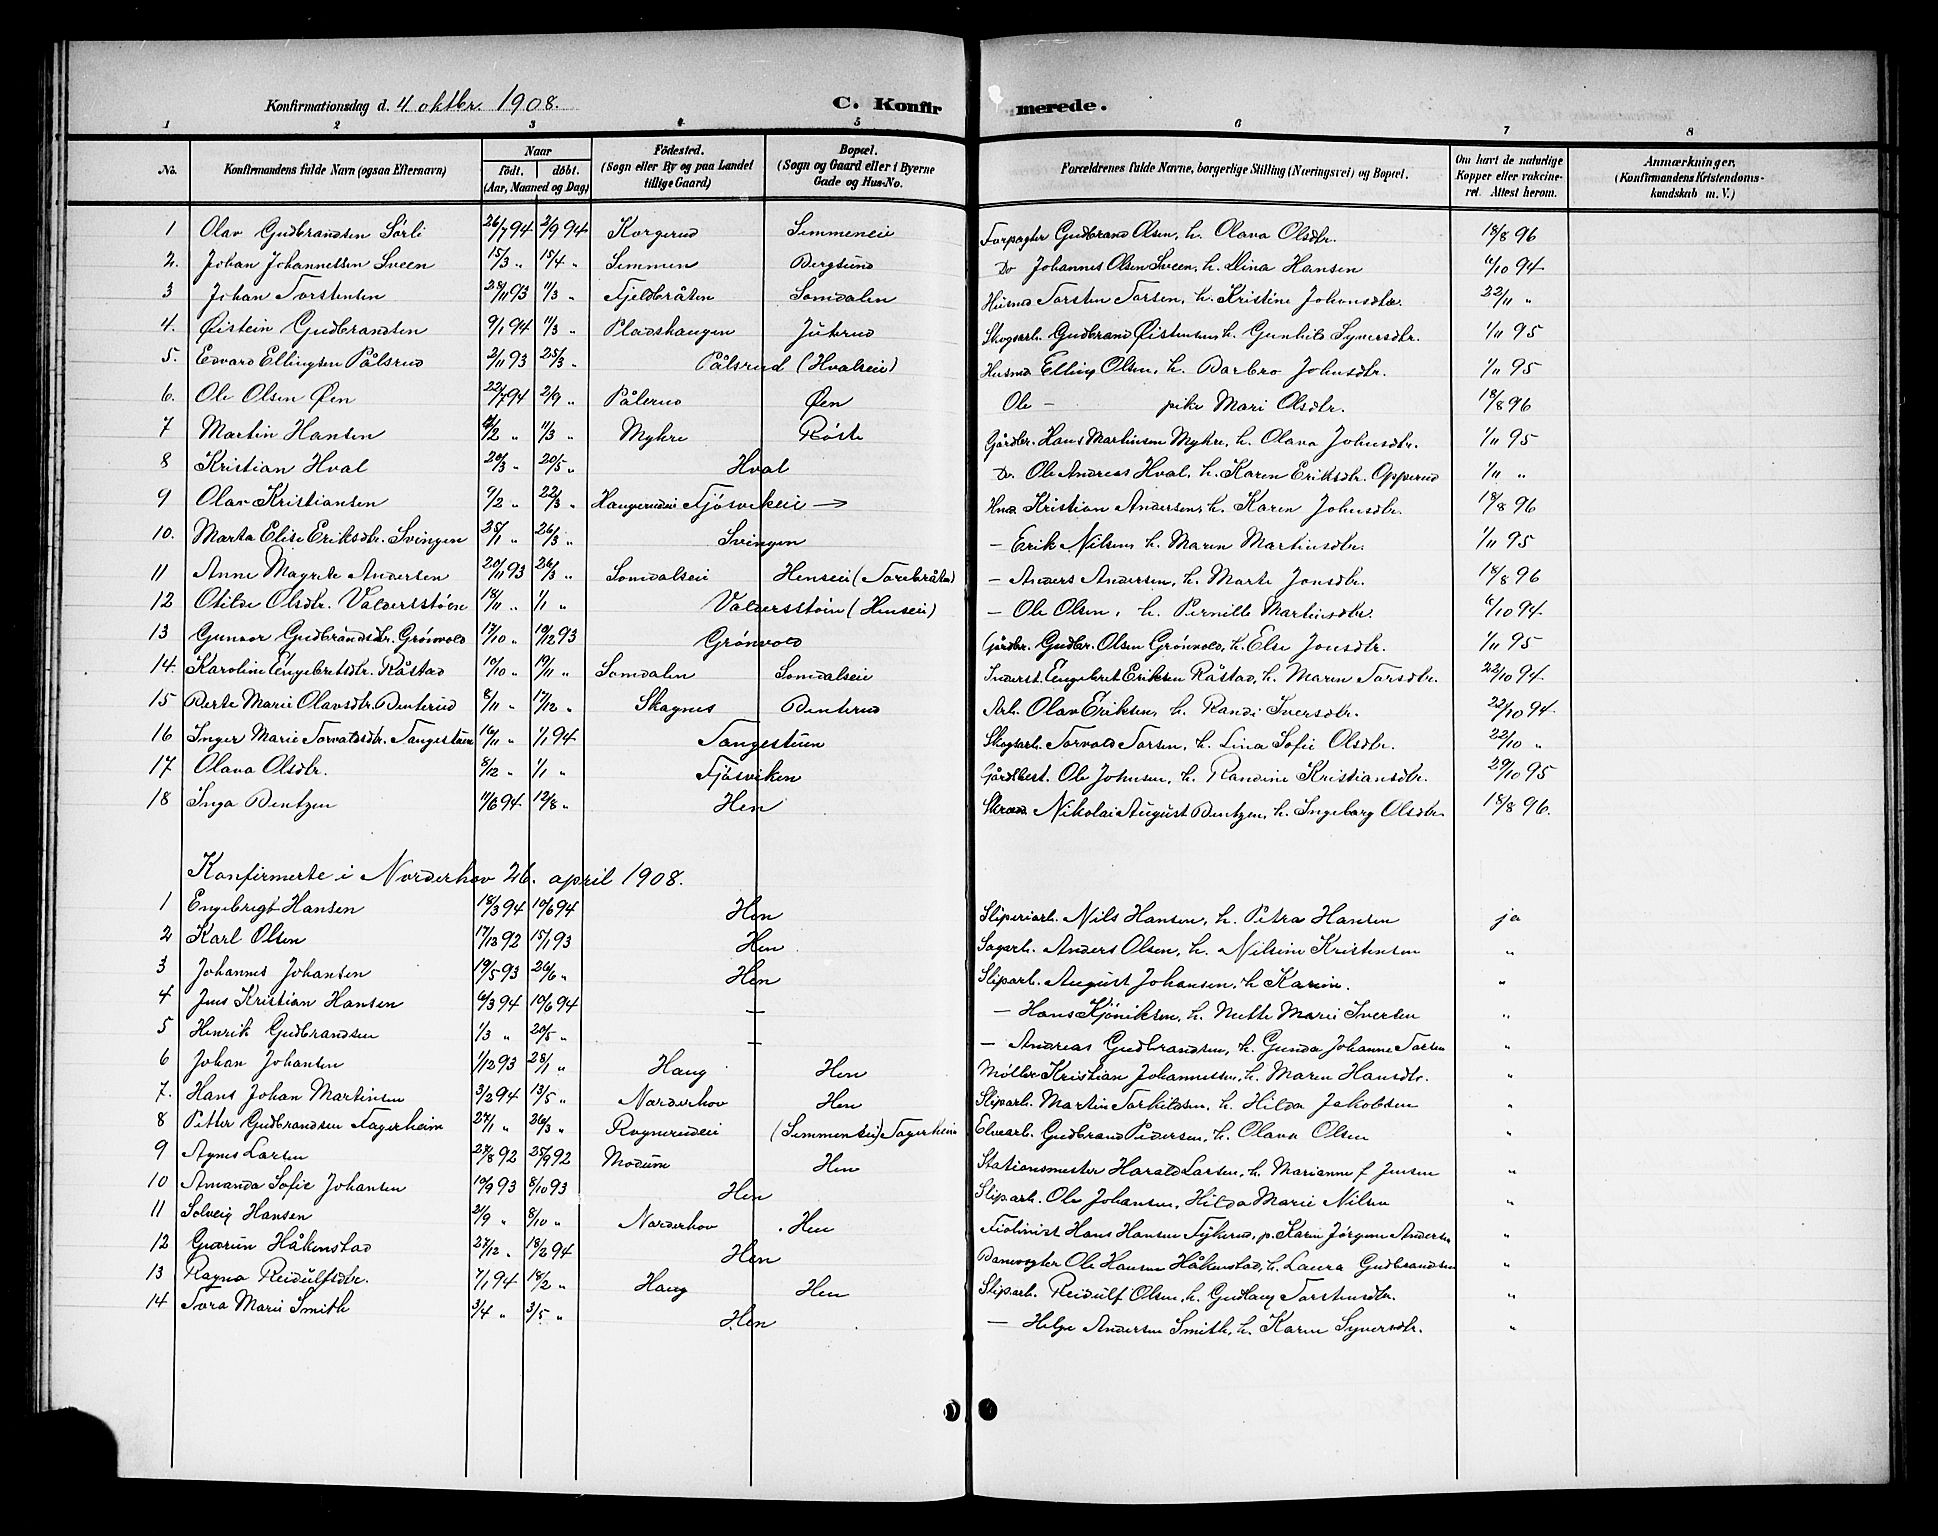 Konfirmationsdag d. 4 oktbr. 1908. C. Konfirmerede.
1 2 3 4 5 6 7 8
No. Konfirmandens fulde Navn (ogsaa Efternavn) Naar født. døbt. (Aar, Maaned og Dag) Fødested. (Sogn eller By og paa Landet tillige Gaard) Bopæl. (Sogn og Gaard eller i Byerne Gade og Hus-No. Forældrenes fulde Navne, borgerlige Stilling (Næringsvei) og Bopæl. Om havt de naturlige Kopper eller vakcineret. Attest herom. Anmærkninger. (Konfirmandens Kristendomskundskab m. V.)
1 Olav Gudbrandsen Sørli 26/7 94 2/9 94 Korgerud Simmeneie Forpagter Gudbrand Olsen, h. Olava Olsdtr. 18/8 96
2. Johan Johannessen Sveen 15/3 „ 15/4 „ Simmen Bergsund Do Johannes Olsen Sveen, h. Lina Hansen 6/10 94
3 Johan Torstensen 28/11 93 11/3 „ Fjeldbråten Somdalen Husmd Torsten Torsen, h. Kristine Johansdtr. 22/11 „
4. Øistein Gudbrandsen 9/1 94 11/3 „ Pladshaugen Juterud Skogsarb. Gudbrand Øistensen, h. Gunhild Syversdtr. 1/11 95
5. Edvard Ellingsen Pålsrud 2/11 93 25/3 „ Pålsrud (Hvalseie) Husmd Elling Olsen, h. Barbro Johnsdtr. 1/11 95
6. Ole Olsen Øen 22/7 94 2/9 „ Pålerud Øen Ole — pike Mari Olsdtr. 18/8 96
7 Martin Hansen /2 „ 11/3 „ Myhre Røste Gårdbr. Hans Martinsen Myhre, h. Olava Johnsdtr. 1/11 95
8 Kristian Hval 20/3 „ 20/5 „ Hval Do. Ole Andreas Hval, h. Karen Eriksdtr. Opperud 1/11 „
9 Olav Kristiansen 9/2 „ 22/3 „ Haugerudeie Fjøsvikeie → Hmd. Kristian Andersen, h. Karen Johnsdtr. 18/8 96
10. Marta Elise Eriksdtr. Svingen 25/1 „ 26/3 „ Svingen — Erik Nilsen, h. Maren Martinsdtr. 1/11 95
11 Anne Magrete Andersen 20/11 93 26/3 „ Somdalseie Henseie (Torebråten) — Anders Andersen, h. Marte Jonsdtr. 18/8 96
12 Otilde Olsdtr. Valdersstøen 18/11 „ 1/1 „ Valdersstøen (Henseie) — Ole Olsen, h. Pernille Martinsdtr. 6/10 94
13 Gunvor Gudbrandsdtr. Grønvold 17/10 „ 19/12 93 Grønvold Gårdbr. Gudbr. Olsen Grønvold, h. Else Jonsdtr. 1/11 95
14. Karoline Engebretsdtr. Råstad 10/10 „ 19/11 „ Somdalen Somdalseie Inderst. Engebret Eriksen Råstad, h. Maren Torsdtr. 22/10 94
15 Berte Marie Olavsdtr. Benterud 8/11 „ 17/12 „ Skagnes Benterud Arb. Olav Eriksen, h. Randi Iversdtr. 22/10 94.
16 Inger Marie Torvaldsdtr. Tangestuen 16/11 „ 1/1 94 Tangestuen Skogsarb. Torvald Torsen, h. Lina Sofie Olsdtr. 22/10 „
17 Olava Olsdtr. 8/12 „ 1/1 „ Fjøsviken Gårdbest. Ole Johnsen, h. Randine Kristiansdtr. 29/10 95
18 Inga Bentzen 11/6 94 12/8 „ Hen Skræd. Nikolai August Bentzen, h. Ingeborg Olsdtr. 18/8 96.
Konfirmerte i Norderhov 26. april 1908.
1 Engebregt Hansen 18/3 94 10/6 94 Hen Sliperiarb. Nils Hansen, h. Petra Hansen ja
2 Karl Olsen 17/12 92 15/1 93 Hen. Sagarb. Anders Olsen, h. Nilsine Kristensen „
3 Johannes Johansen 19/5 93 26/6 „ Hen Sliparb. August Johansen, h. Karin. „
4 Jens Kristian Hansen 6/3 94 10/6 94 — — Hans Kjøniksen, h. Mette Marie Iversen „
5 Henrik Gudbrandsen 1/3 „ 20/5 „ — — Andreas Gudbrandsen, h. Gunda Johanne Torsen „
6 Johan Johansen 1/12 93 28/1 „ Haug Hen Møller Kristian Johannessen, h. Maren Hansdtr. „
7. Hans Johan Martinsen 3/2 94 13/5 „ Norderhov Hen Sliparb. Martin Torkildsen, h. Hilda Jakobsen „
8 Petter Gudbrandsen Fagerheim 27/1 „ 26/3 „ Rognerudeie (Simmenseie) Fagerheim Elvearb. Gudbrand Pedersen, h. Olava Olsen „
9 Agnes Larsen 27/8 92 25/9 92 Modum Hen Stationsmester Harald Larsen, h. Marianne f. Jensen „
10 Amanda Sofie Johansen 19/9 93 8/10 93 Hen Sliparb. Ole Johansen, Hilda Marie Nilsen „
11 Solveig Hansen 21/9 „ 8/10 „ Norderhov Hen Fiolinist Hans Hansen Fykerud, p. Karin Jørgine Andersen „
12 Gudrun Håkenstad 27/12 „ 18/2 94 Hen Banevogter Ole Hansen Håkenstad, h. Laura Gudbrandsen „
13 Ragna Reidulfsdtr. 7/1 94 18/2 „ Haug Hen Sliparb. Reidulf Olsen, h. Gudlaug Torstensdtr. „
14 Tora Marie Smith 3/4 „ 3/5 „ Hen — Helge Andersen Smith, h. Karen Syversdtr. „